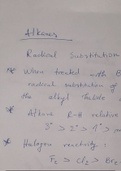 Alkanes
Radical Substitution
* When treated with B
radical substitution of
the alkyl halide
* Alkane R-H relative
3° > 2° > 1° >
* Halogen reactivity :
F₂ > Cl₂ > Br₂